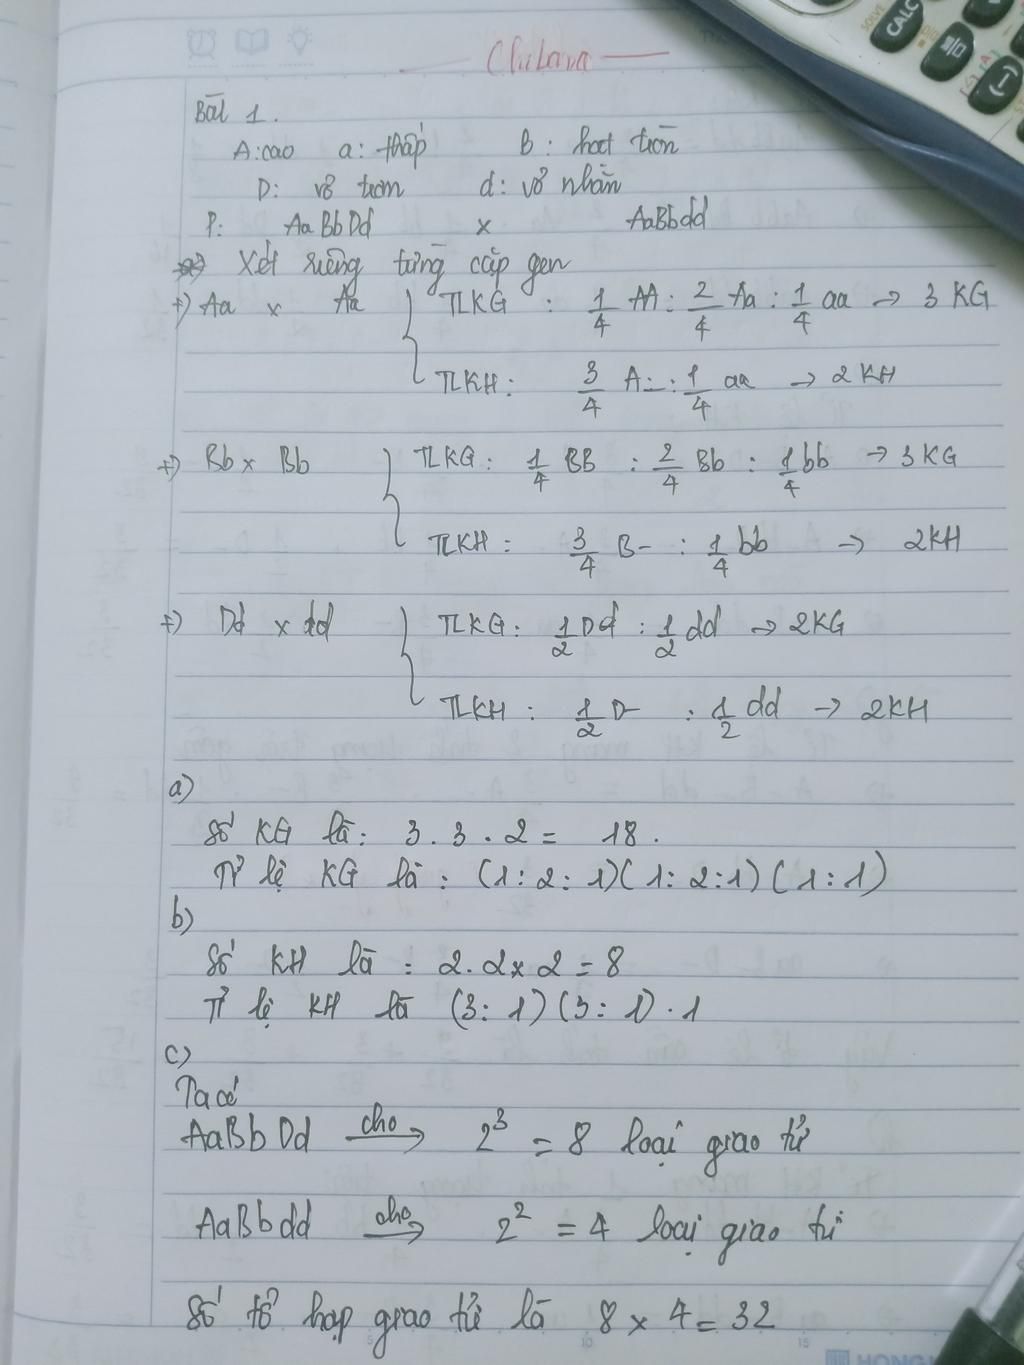 Bài 1.
A: cao a: thấp B: hạt tròn
D: vỏ trơn d: vỏ nhăn
P: AaBbDd x AaBbdd
Xét riêng từng cặp gen
+) Aa x Aa { TLKG : 1/4 AA : 2/4 Aa : 1/4 aa → 3 KG
TLKH : 3/4 A- : 1/4 aa → 2 KH
+) Bb x Bb { TLKG : 1/4 BB : 2/4 Bb : 1/4 bb → 3 KG
TLKH : 3/4 B- : 1/4 bb → 2KH
+) Dd x dd { TLKG : 1/2 Dd : 1/2 dd → 2KG
TLKH : 1/2 D- : 1/2 dd → 2KH
a)
Số KG là : 3 . 3 . 2 = 18 .
Tỉ lệ KG là : (1 : 2 : 1)(1 : 2 : 1)(1 : 1)
b)
Số KH là : 2 . 2 x 2 = 8
Tỉ lệ KH là (3 : 1)(3 : 1) . 1
c)
Ta có
AaBbDd cho → 2³ = 8 loại giao tử
AaBbdd cho → 2² = 4 loại giao tử
Số tổ hợp giao tử là 8 x 4 = 32
CALC
SOLVE
15